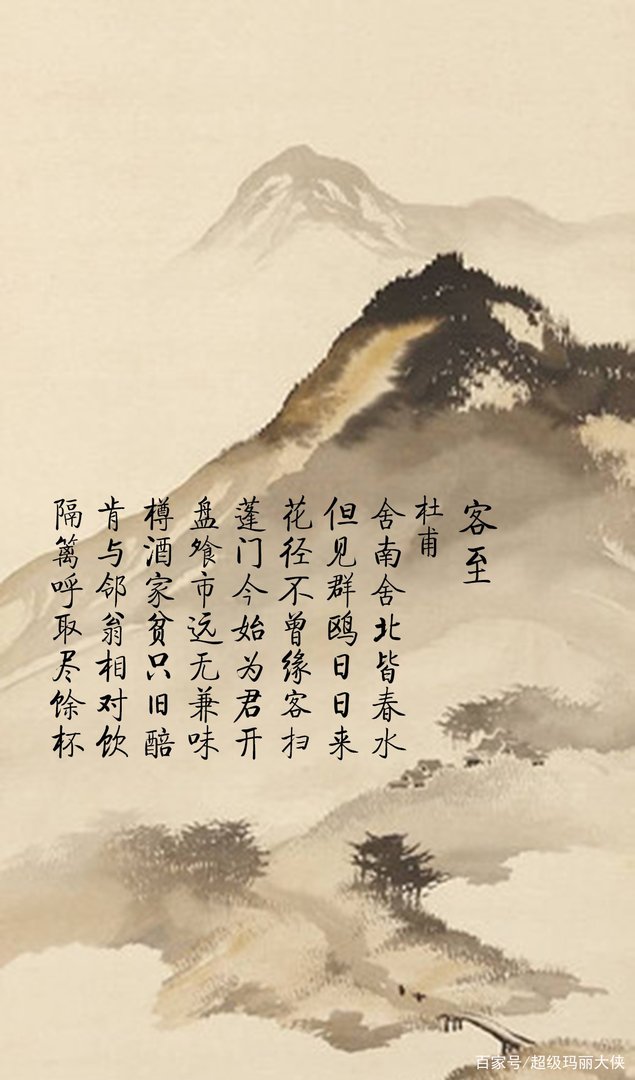 客至
杜甫
舍南舍北皆春水
但见群鸥日日来
花径不曾缘客扫
蓬门今始为君开
盘飧市远无兼味
樽酒家贫只旧醅
肯与邻翁相对饮
隔篱呼取尽馀杯
百家号/超级玛丽大侠